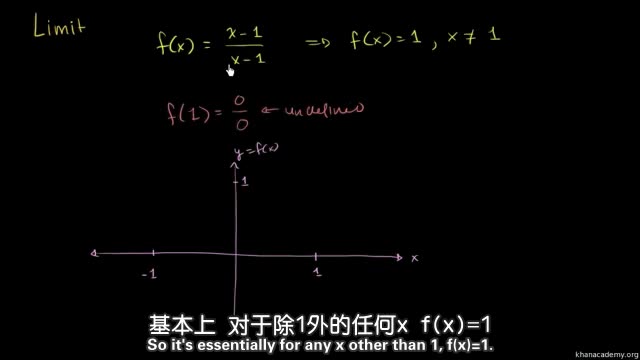 Limit
f(x) = x-1 / x-1 ⇒ f(x) = 1 , x ≠ 1
f(1) = 0/0 ← undefined
y=f(x)
1
x
-1
1
基本上 对于除1外的任何x f(x)=1
So it's essentially for any x other than 1, f(x)=1.
khanacademy.org